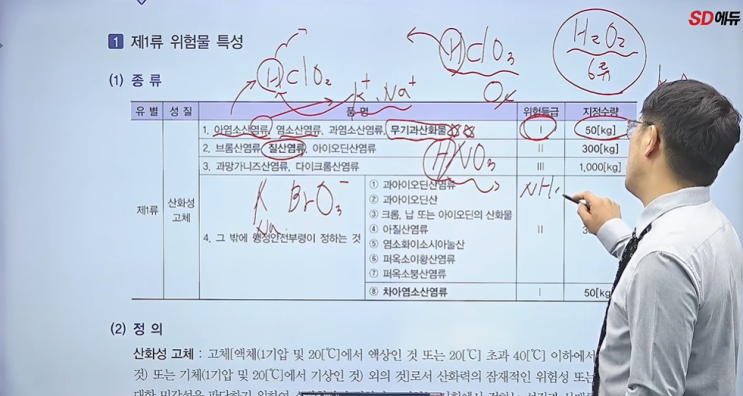 SD에듀
1 제1류 위험물 특성
(1) 종 류
유 별 성 질 품 명 위험등급 지정수량
1. 아염소산염류, 염소산염류, 과염소산염류, 무기과산화물 I 50[kg]
2. 브롬산염류, 질산염류, 아이오딘산염류 II 300[kg]
3. 과망가니즈산염류, 다이크롬산염류 III 1,000[kg]
제1류 산화성 고체
4. 그 밖에 행정안전부령이 정하는 것
① 과아이오딘산염류
② 과아이오딘산
③ 크롬, 납 또는 아이오딘의 산화물
④ 아질산염류
⑤ 염소화이소시아눌산
⑥ 퍼옥소이황산염류
⑦ 퍼옥소붕산염류
II
⑧ 차아염소산염류 I 50[kg]
(2) 정 의
산화성 고체 : 고체[액체(1기압 및 20[℃]에서 액상인 것 또는 20[℃] 초과 40[℃] 이하에서
것) 또는 기체(1기압 및 20[℃]에서 기상인 것) 외의 것]로서 산화력의 잠재적인 위험성 또는
HClO₂
HClO₃
H₂O₂
6류
K⁺ Na⁺
HNO₃
K BrO₃⁻
Na
NH